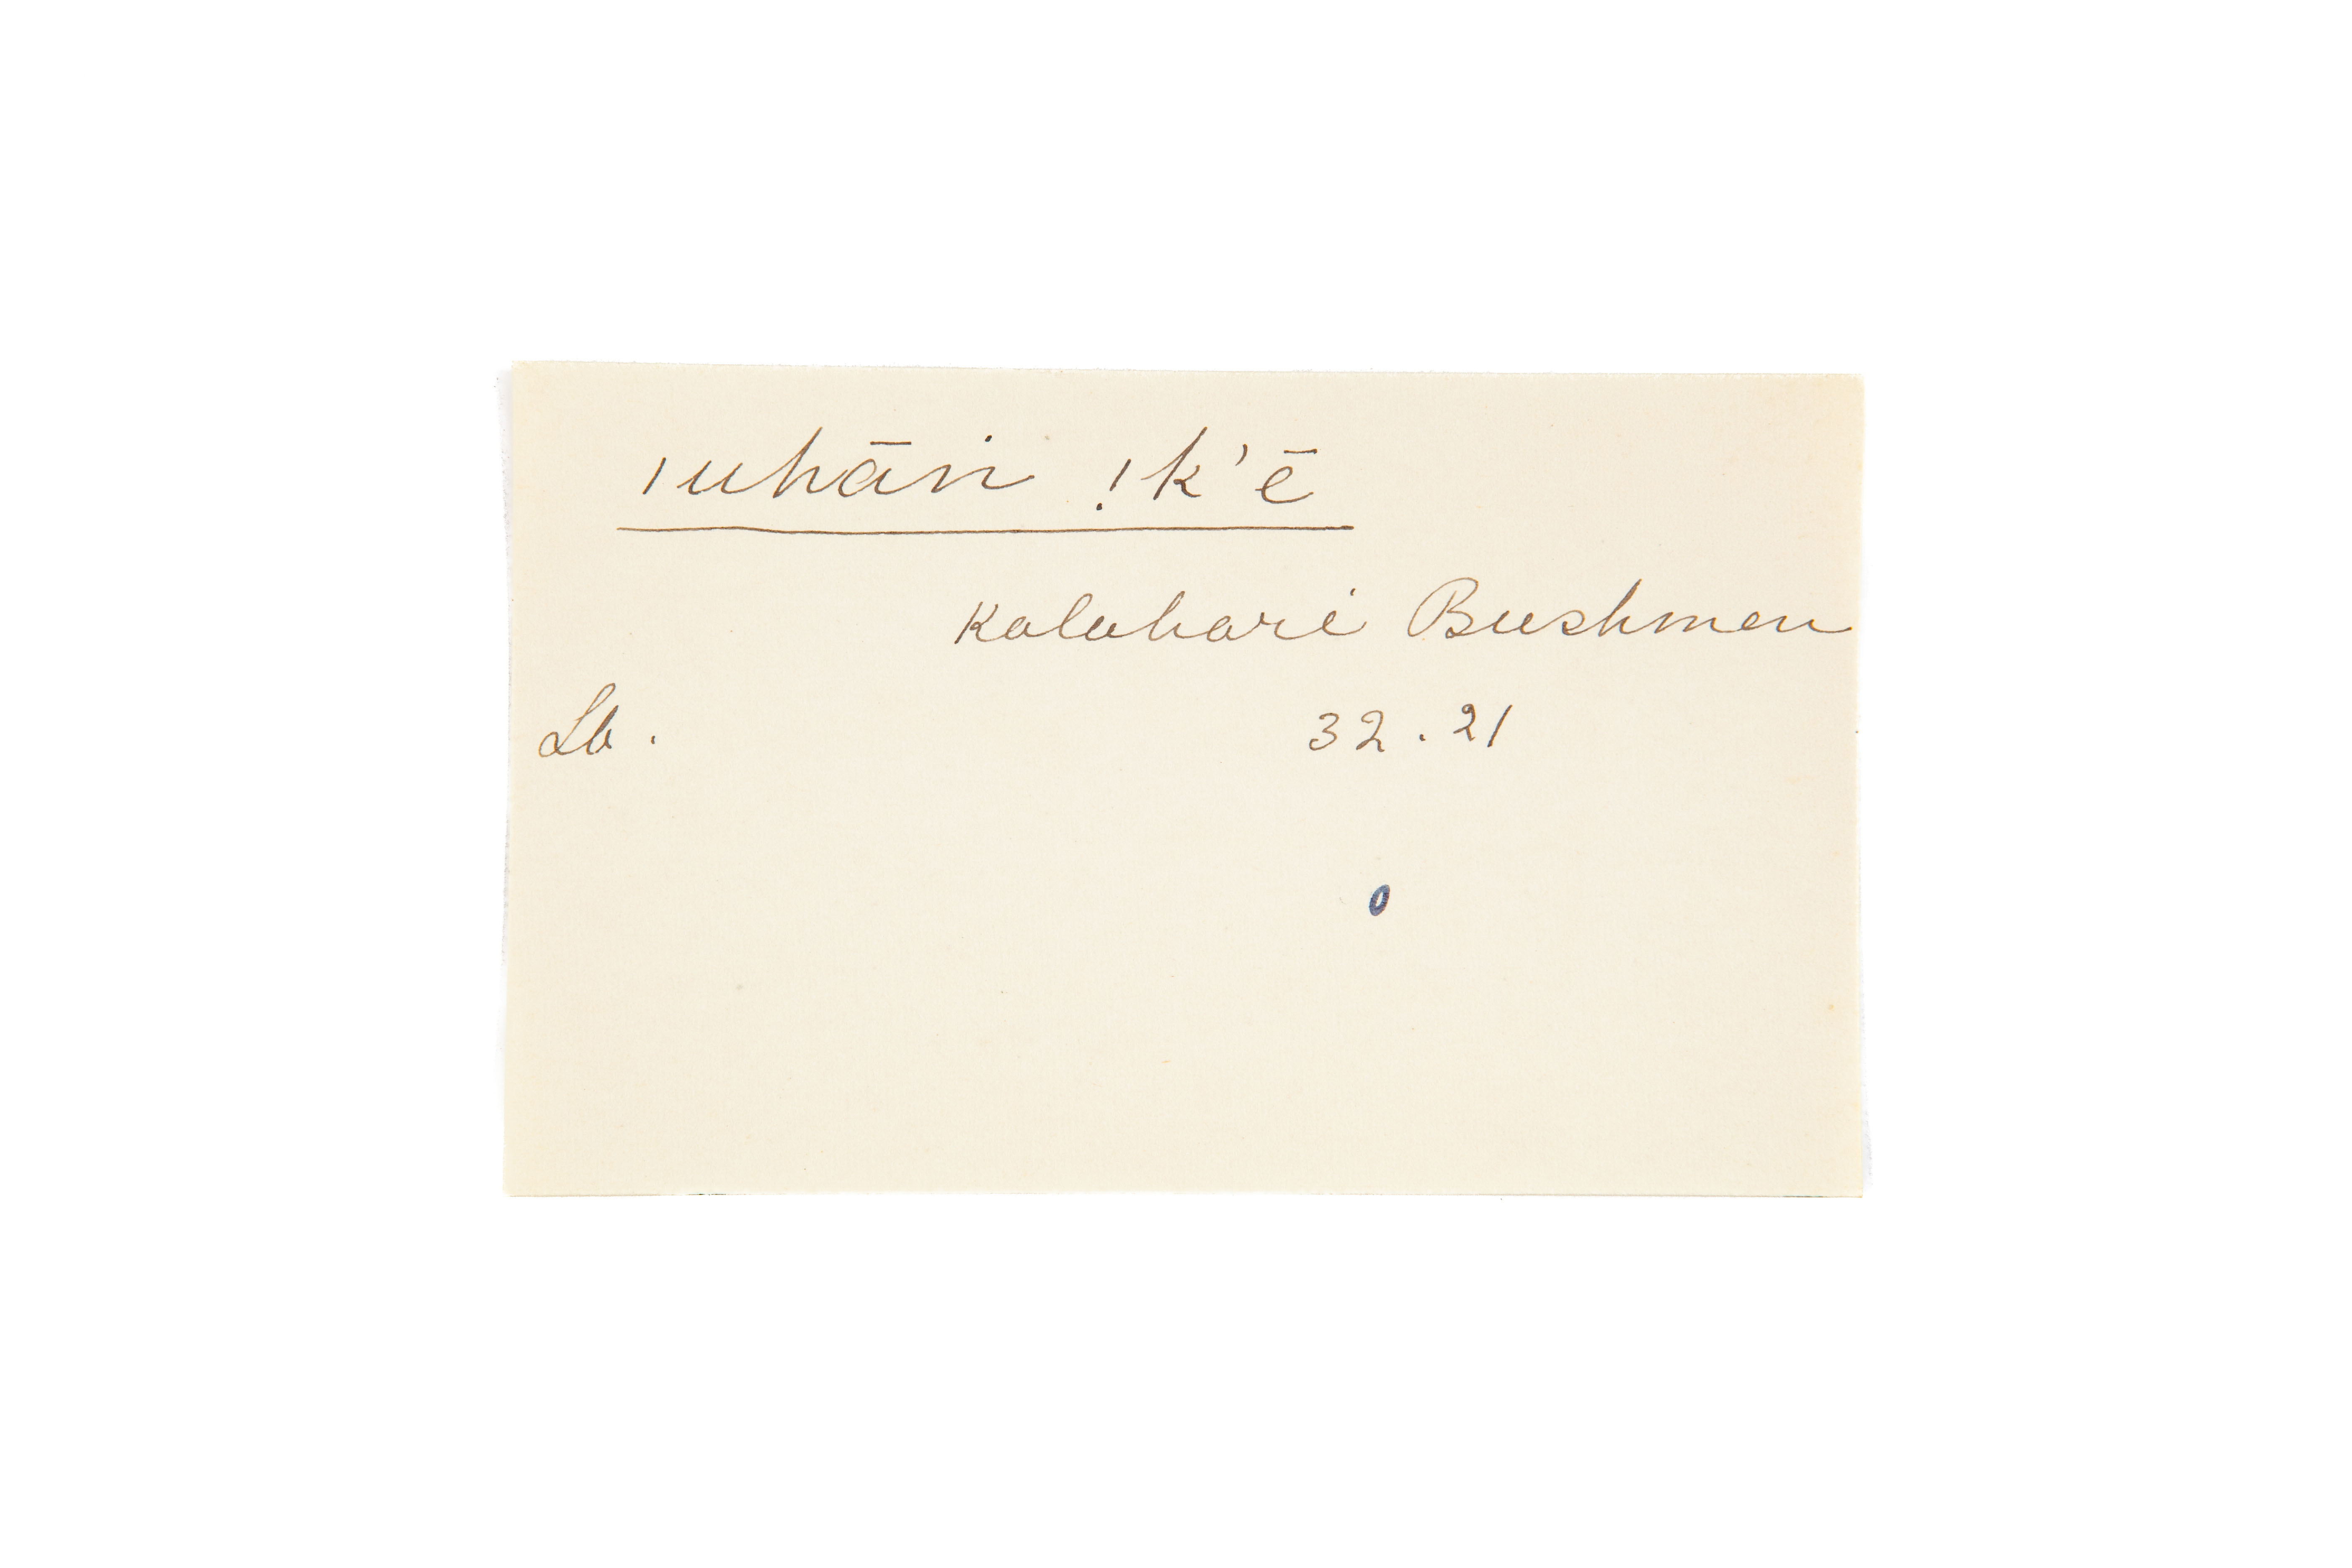 ǀuhāṅ !k'ē
Kalahari Bushmen
Lb. 32.21
0